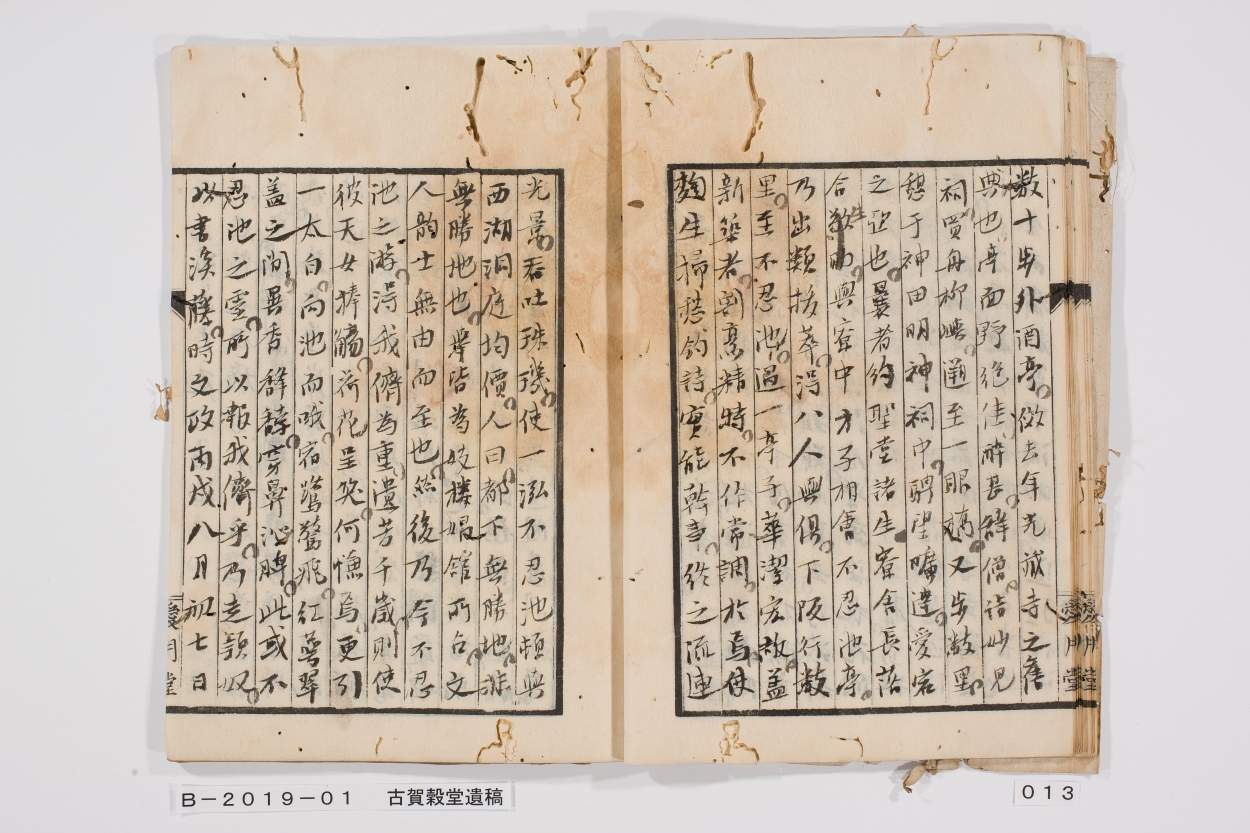 数十歩外酒亭倣去年光誠寺之舊
典也亭面野絶佳酔甚辞僧詣妙見
祠買舟柳嶼通至一眼橋又歩数里
憩于神田明神祠中聘望曠達愛宕
之亞也曩者約聖堂諸生寮舎長蒞
合歓助興寮中才子相會不忍池亭
乃出類抜萃得八人與俱下阪行数
里至不忍池過一亭子華潔宏敞蓋
新築者割烹精特不作常調於焉使
麹生掃愁釣詩實能幹事從之流連
光景呑吐珠璣使一泓不忍池頓與
西湖洞庭均價人曰都下無勝地非
無勝地也举皆為妓楼娼館所占文
人韵士無由而至也然後乃今不忍
池之游得我儕為重遺芳千歳則使
彼天女捧觴荷花呈笑何慊焉更引
一太白向池而哦宿鷺驚飛紅萼翠
蓋之間異香馥馥穿鼻沁脾此或不
忍池之霊所以報我儕乎乃走頴奴
以書溪藤時文政丙戌八月初七日
愛月堂
愛月堂
B－2019－01　古賀穀堂遺稿
013